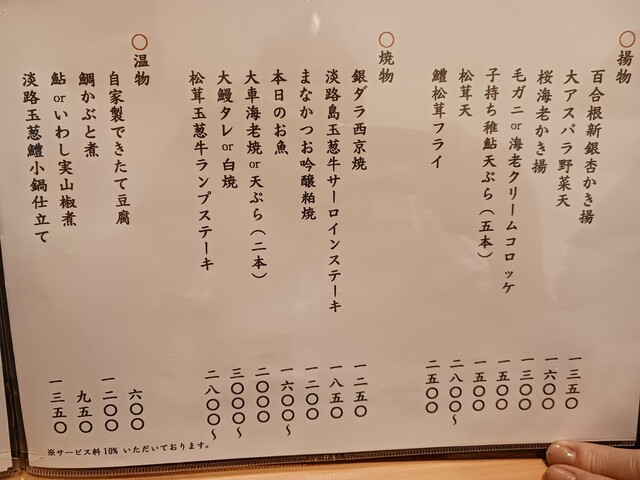 〇揚物
百合根新銀杏かき揚 一三五〇
大アスパラ野菜天 一六〇〇
桜海老かき揚 一三〇〇
毛ガニor海老クリームコロッケ 一五〇〇
子持ち稚鮎天ぷら(五本) 一五〇〇
松茸天 二八〇〇〜
鱧松茸フライ 二五〇〇
〇焼物
銀ダラ西京焼 一二五〇
淡路島玉葱牛サーロインステーキ 一八五〇
まなかつお吟醸粕焼 一二〇〇
本日のお魚 一六〇〇〜
大車海老焼or天ぷら(二本) 二〇〇〇
大鰻タレor白焼 三〇〇〇〜
松茸玉葱牛ランプステーキ 二八〇〇〜
〇温物
自家製できたて豆腐 六〇〇
鯛かぶと煮 一二〇〇
鮎orいわし実山椒煮 九五〇
淡路玉葱鱧小鍋仕立て 一三五〇
※サービス料10% いただいております。